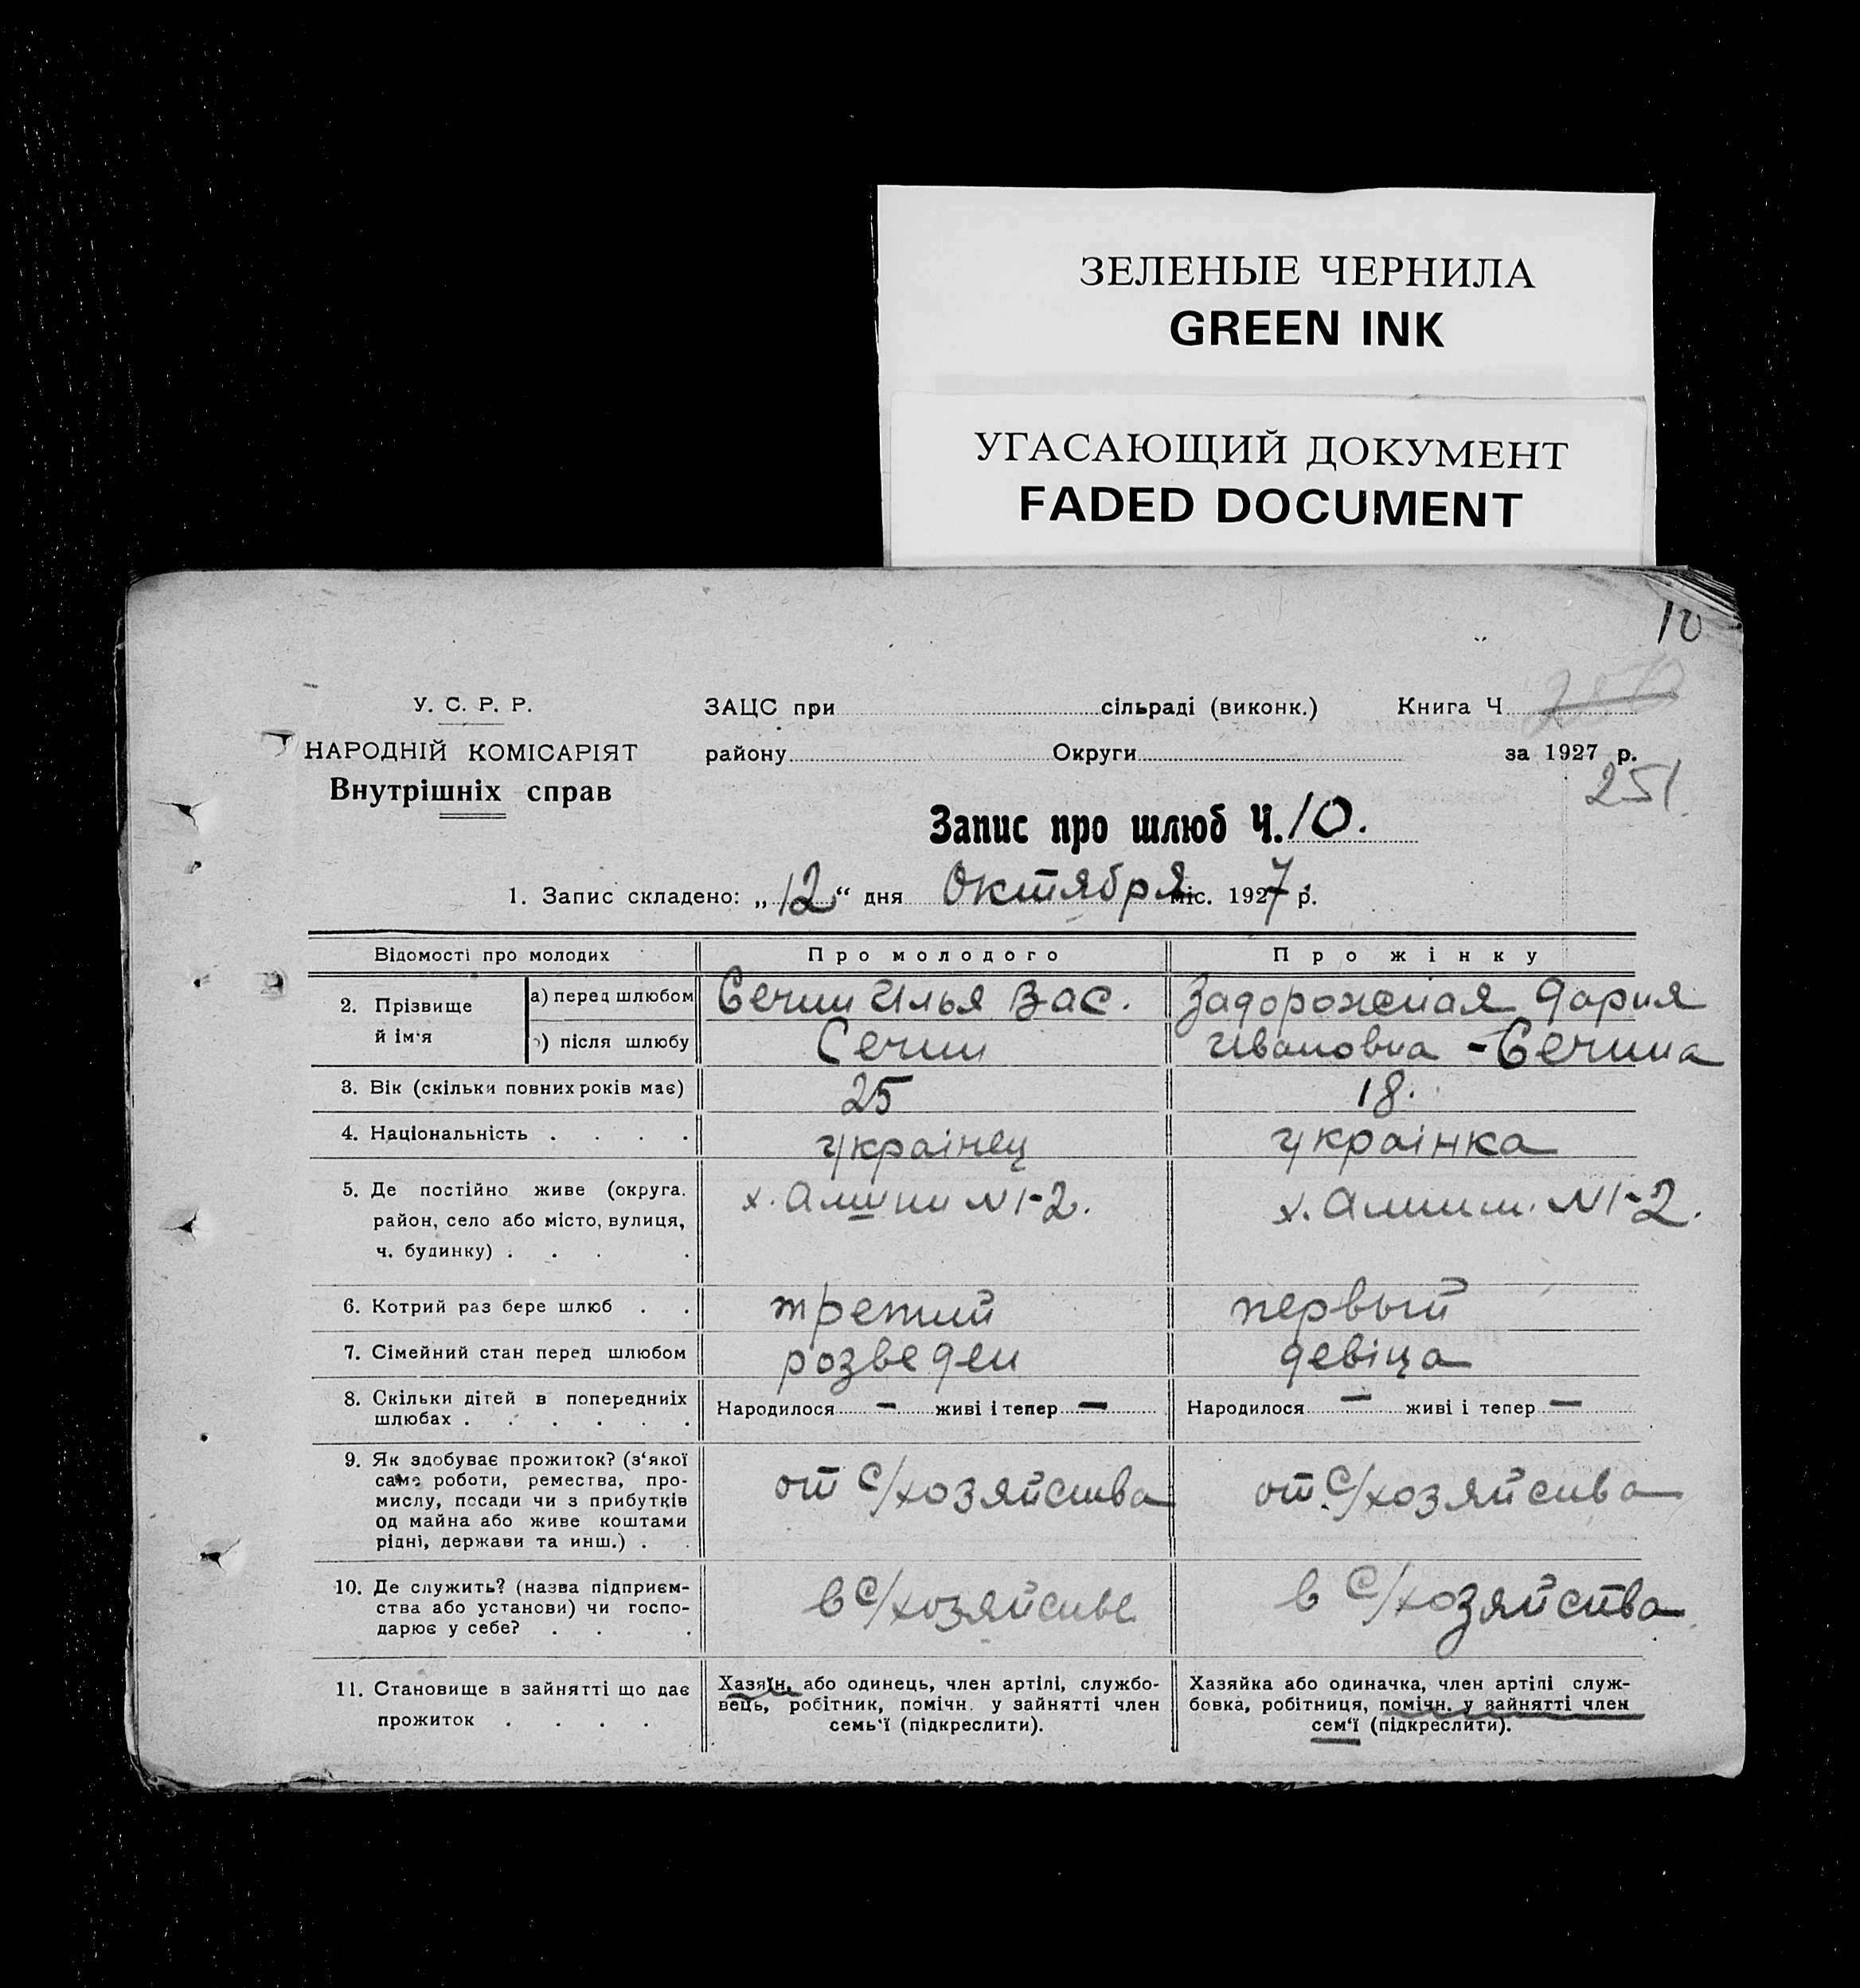 ЗЕЛЕНЫЕ ЧЕРНИЛА
GREEN INK
УГАСАЮЩИЙ ДОКУМЕНТ
FADED DOCUMENT
10
У. С. Р. Р.
ЗАЦС при сільраді (виконк.) Книга Ч
НАРОДНІЙ КОМІСАРІЯТ
району Округи за 1927 р.
Внутрішніх справ
251
Запис про шлюб Ч. 10.
1. Запис складено: „12“ дня Октября міс. 1927 р.
Відомості про молодих Про молодого Про жінку
2. Прізвище й ім'я
а) перед шлюбом Сечин Илья Вас. Задорожная Дария
б) після шлюбу Сечин Ивановна - Сечина
3. Вік (скільки повних років має) 25 18.
4. Національність . . . . українец українка
5. Де постійно живе (округа. х. N 1-2. х. N 1-2.
район, село або місто, вулиця,
ч. будинку) . . . .
6. Котрий раз бере шлюб . . третий первый
7. Сімейний стан перед шлюбом розведен девіца
8. Скільки дітей в попередниіх Народилося - живі і тепер - Народилося - живі і тепер -
шлюбах . . . . . .
9. Як здобуває прожиток? (з‘якої от с/хозяйства от с/хозяйства
саме роботи, ремества, про-
мислу, посади чи з прибутків
од майна або живе коштами
рідні, держави та инш.) . .
10. Де служить? (назва підприєм- в с/хозяйстве в с/хозяйства
ства або установи) чи госпо-
дарює у себе? . . .
11. Становище в зайнятті що дає прожиток . . . .
Хазяїн, або одинець, член артілі, службо-
вець, робітник, помічн. у зайнятті член
семь‘ї (підкреслити).
Хазяйка або одиначка, член артілі служ-
бовка, робітниця, помічн. у зайнятті член
сем‘ї (підкреслити).